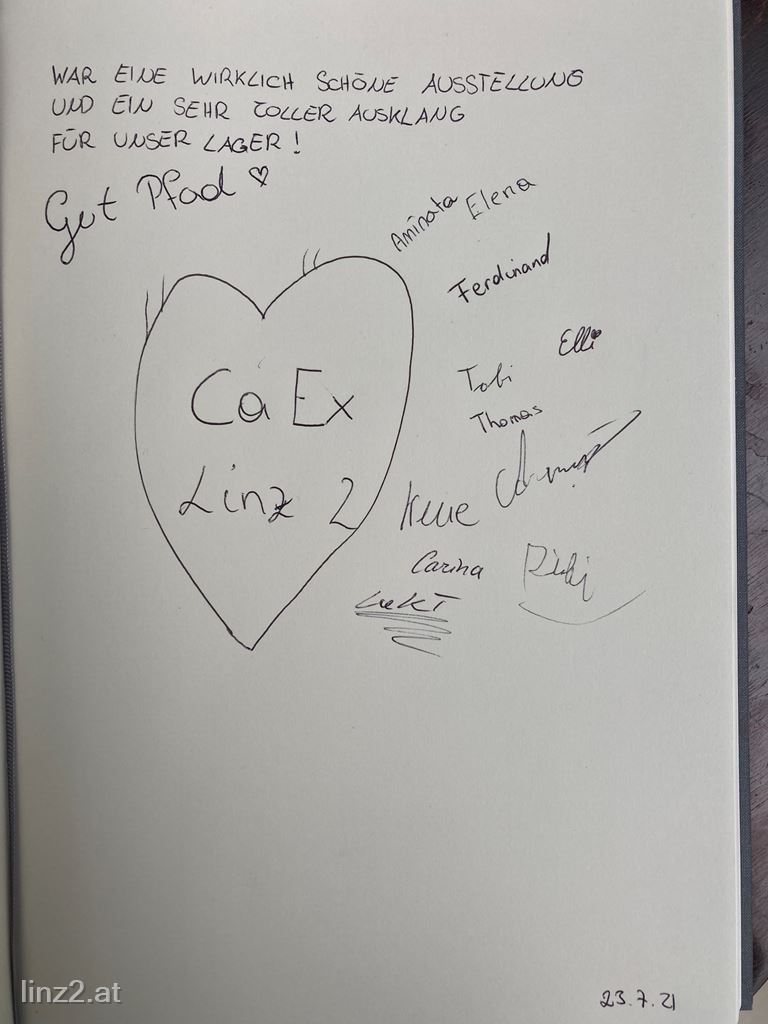 WAR EINE WIRKLICH SCHÖNE AUSSTELLUNG
UND EIN SEHR TOLLER AUSKLANG
FÜR UNSER LAGER!
Gut Pfad ♡
Aminata
Elena
Ferdinand
Elli
Tobi
Thomas
Ca Ex
Linz 2
Carina
23.7.21
linz2.at